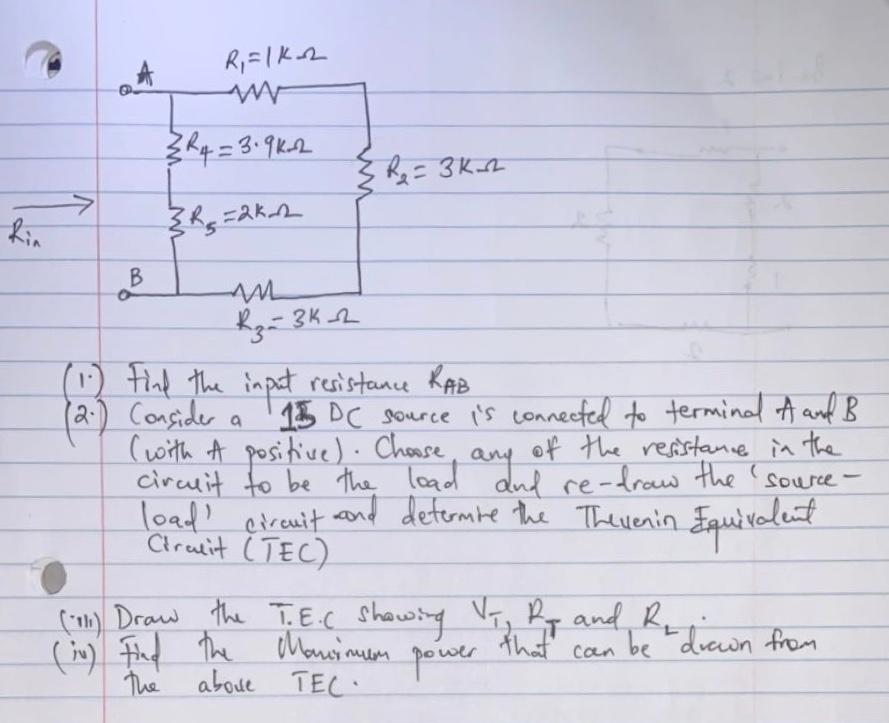 R₁=1KΩ
A
R₄=3.9KΩ
R₂=3KΩ
R₅=2KΩ
Rin
B
R₃=3KΩ
(1.) Find the input resistance RAB
(2.) Consider a 15 DC source is connected to terminal A and B
(with A positive). Choose any of the resistance in the
circuit to be the load and re-draw the 'source-
load' circuit and determine the Thevenin Equivalent
Circuit (TEC)
(iii) Draw the T.E.C showing VT, RT and RL.
(iv) Find the Maximum power that can be drawn from
the above TEC.